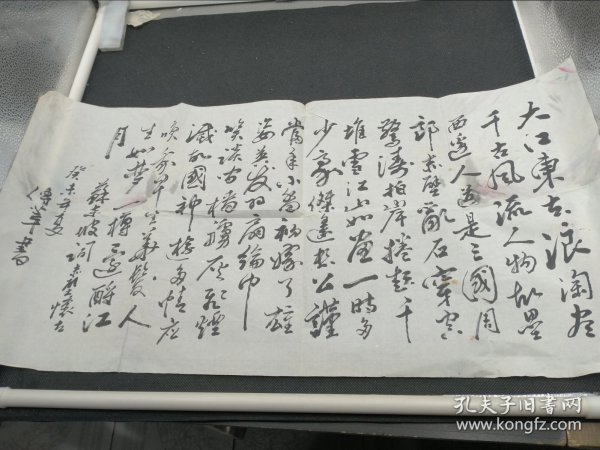 大江東去浪淘尽
千古風流人物故壘
西邊人道是三國周
郎赤壁亂石穿空
驚濤拍岸捲起千
堆雪江山如畫一時多
少豪傑遙想公瑾
當年小喬初嫁了雄
姿英发羽扇綸巾
談笑間檣櫓灰飛煙
滅故國神遊多情應
笑我早生華髮人
生如夢一樽還酹江
月
蘇東坡詞赤壁懷古
癸未年夏
書
孔夫子旧书网
www.kongfz.com